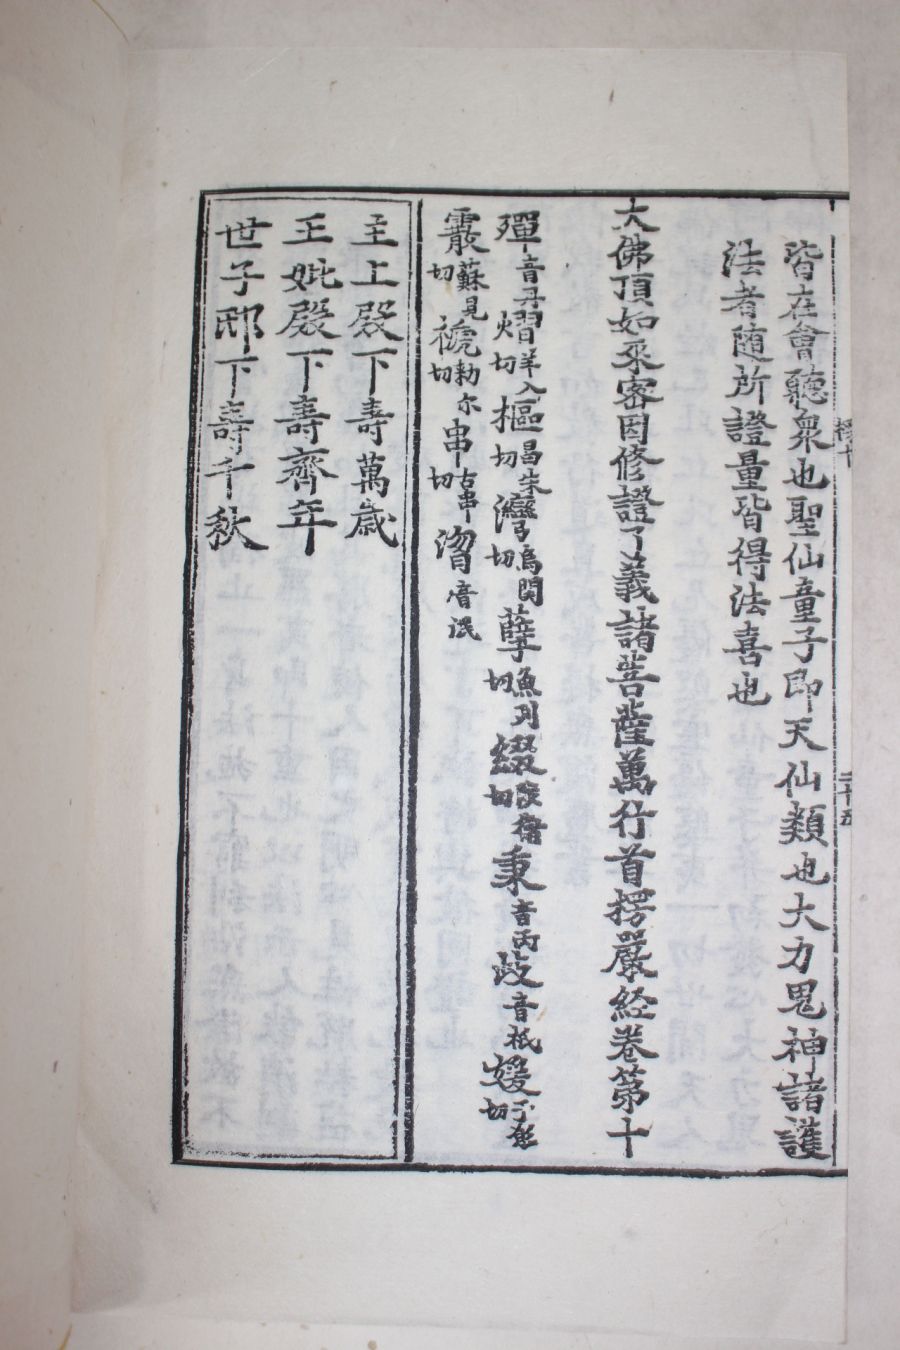 皆在會聽衆也聖仙童子即天仙類也大力鬼神諸護
法者随所證量皆得法喜也
大佛頂如来密因修證了義諸菩薩萬行首楞嚴経卷第十
殫音丹熠羊入切樞昌朱切灣烏関切孽魚列切綴切秉音丙歧音祇嫒切
霰蘇見切褫勅尓切串古串切湣音泯
主上殿下壽萬歲
王妣殿下壽齊年
世子邸下壽千秋
楞十
二十五